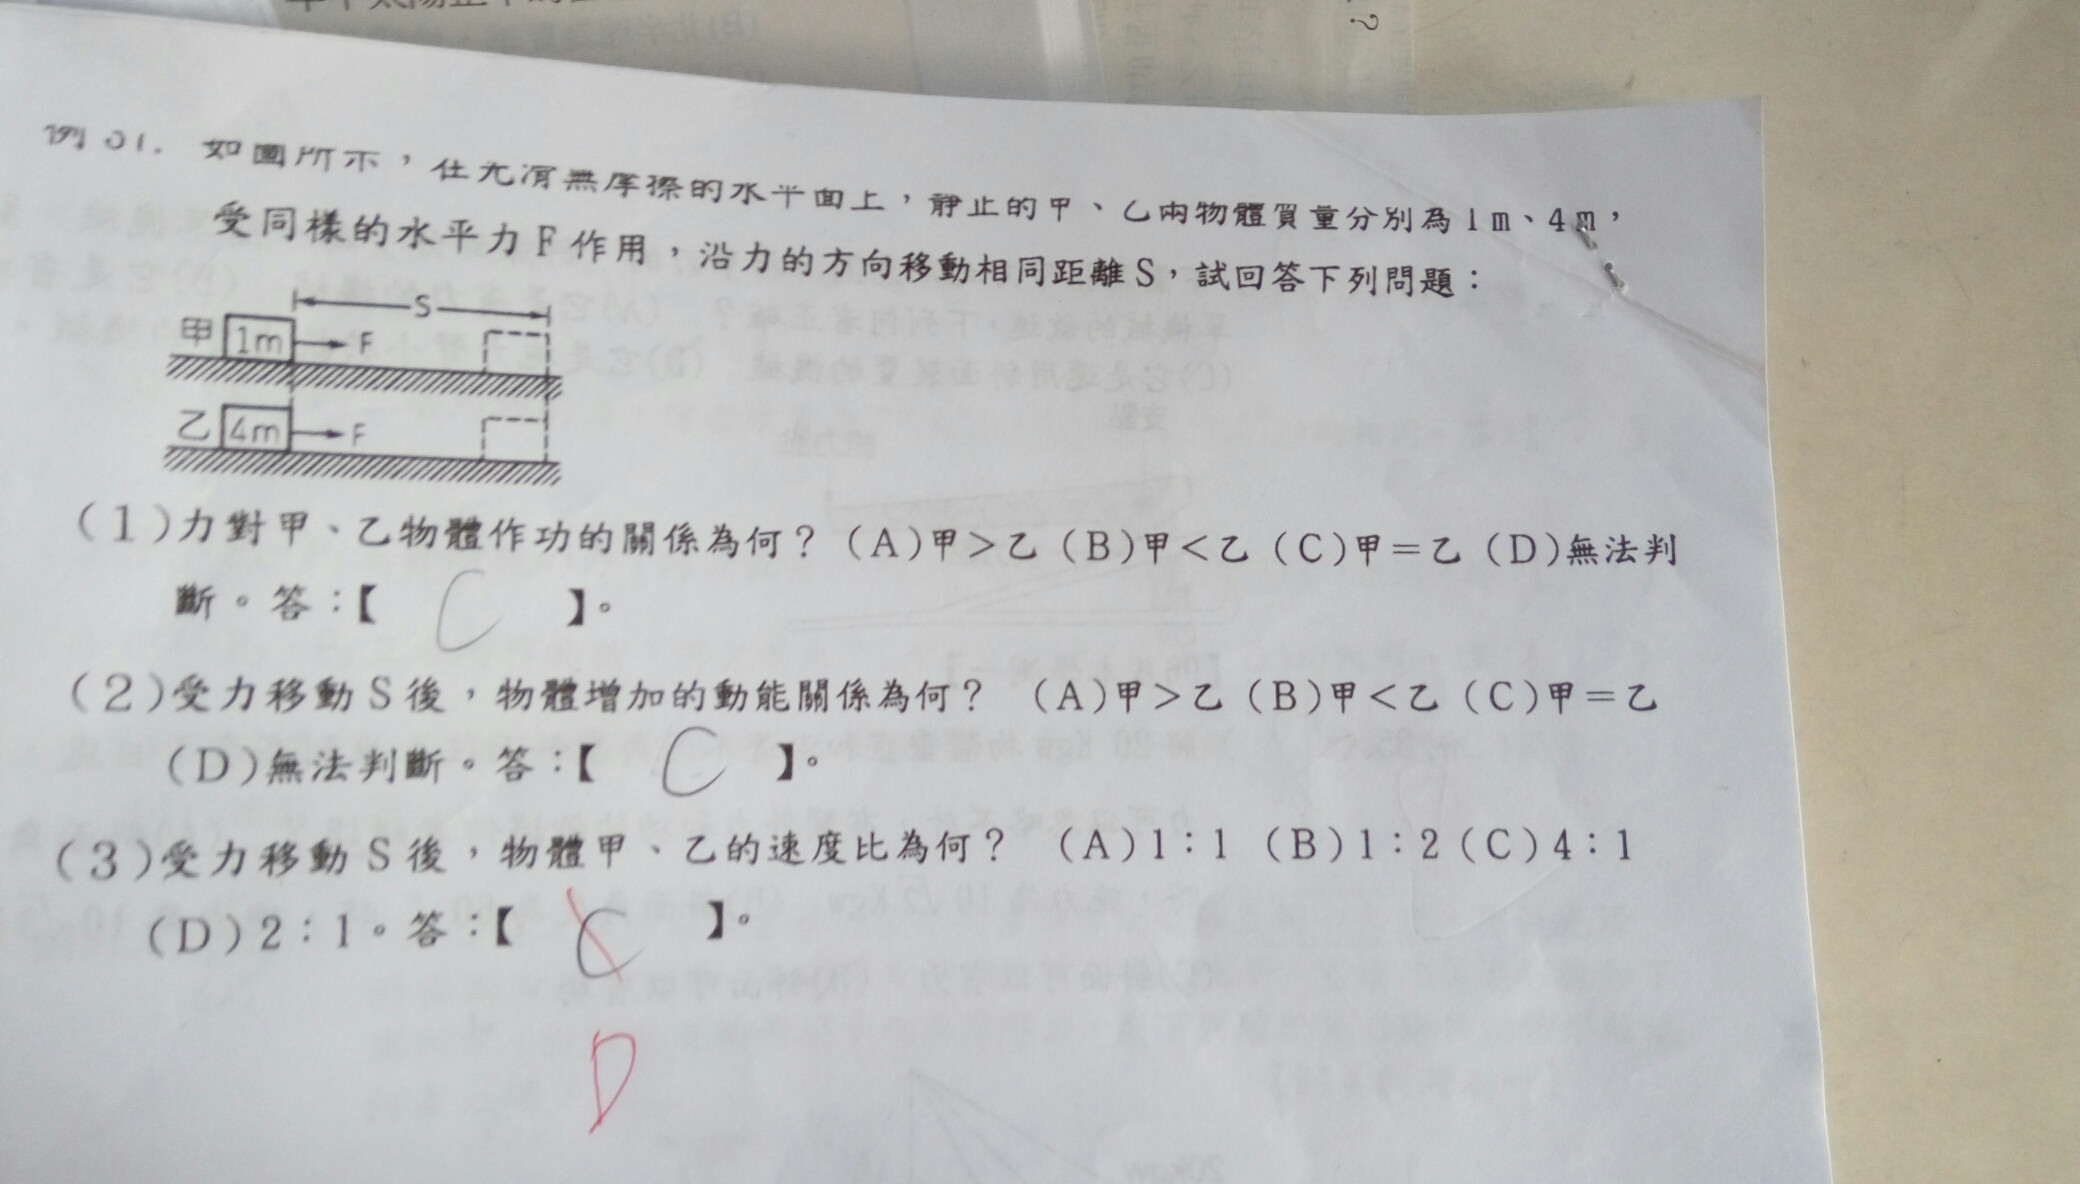 例 31. 如圖所示，在光滑無摩擦的水平面上，靜止的甲、乙兩物體質量分別為1m、4m，
受同樣的水平力F作用，沿力的方向移動相同距離S，試回答下列問題：
S
甲 1m F
乙 4m F
(1)力對甲、乙物體作功的關係為何？(A)甲＞乙 (B)甲＜乙 (C)甲＝乙 (D)無法判
斷。答：【 C 】。
(2)受力移動S後，物體增加的動能關係為何？ (A)甲＞乙 (B)甲＜乙 (C)甲＝乙
(D)無法判斷。答：【 C 】。
(3)受力移動S後，物體甲、乙的速度比為何？ (A)1：1 (B)1：2 (C)4：1
(D)2：1。答：【 C 】。
D